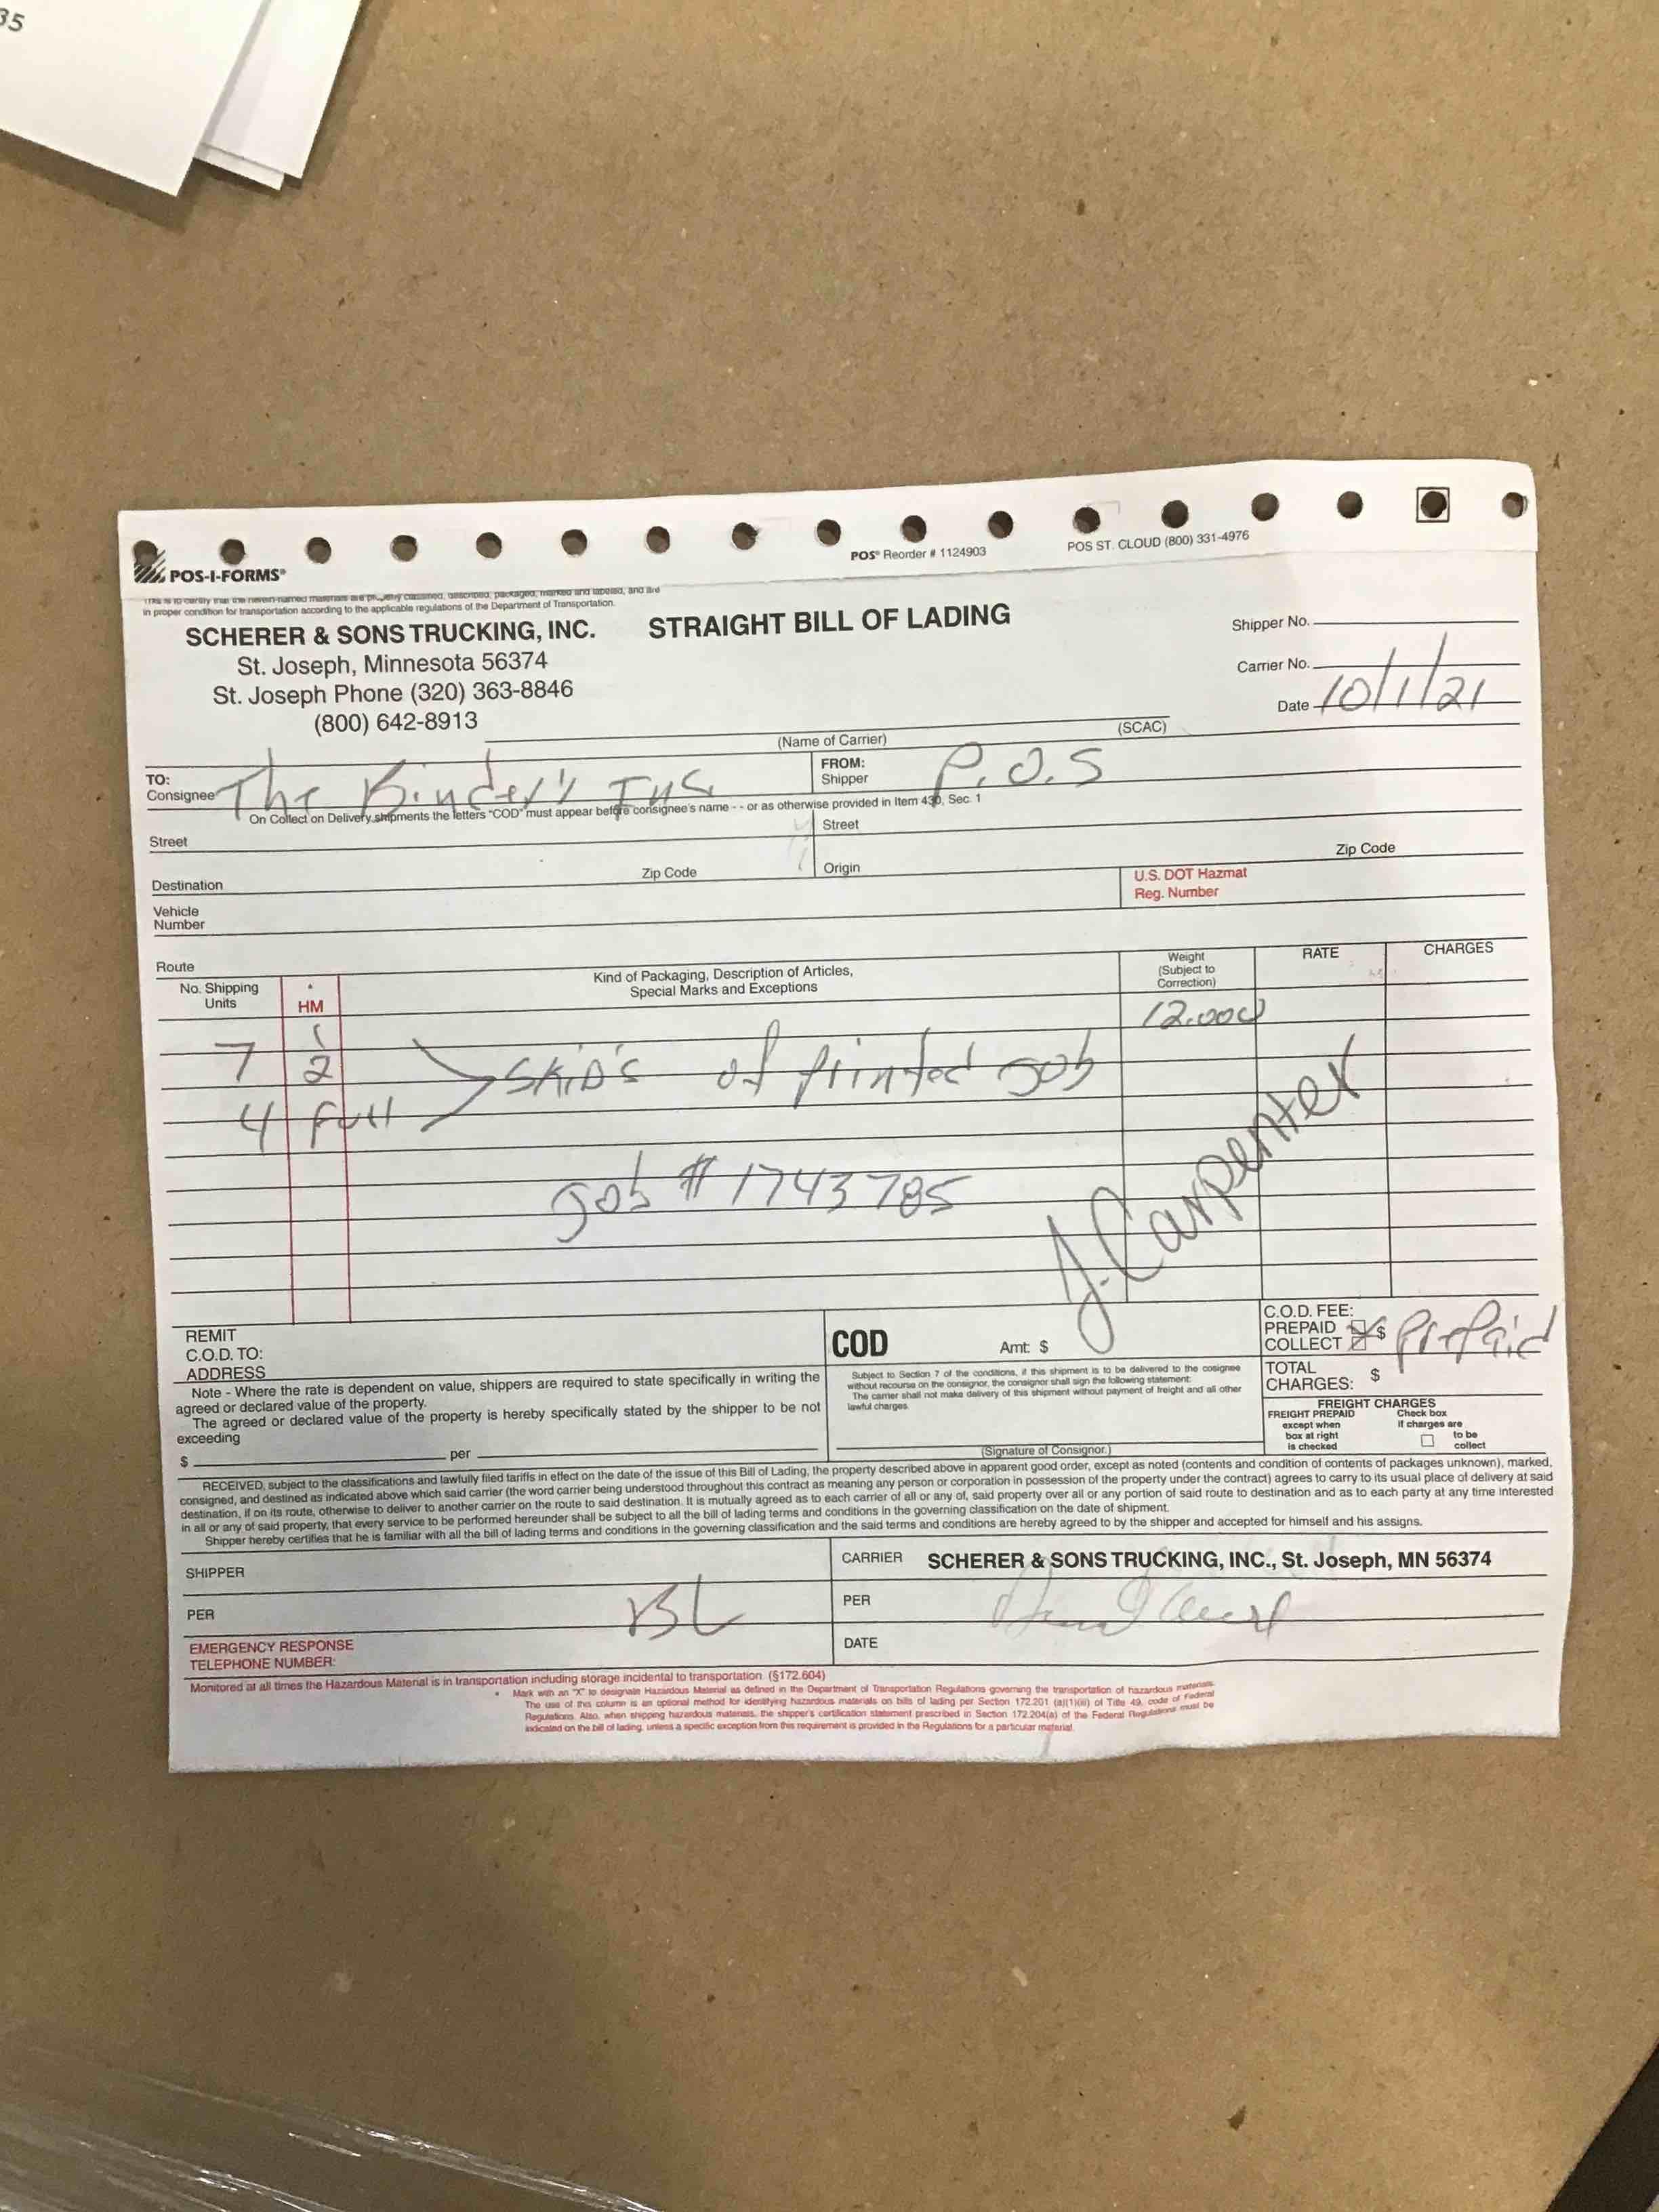 35
POS-I-FORMS®
POS® Reorder # 1124903
POS ST. CLOUD (800) 331-4976
This is to certify that the herein-named materials are properly classified, described, packaged, marked and labeled, and are
in proper condition for transportation according to the applicable regulations of the Department of Transportation.
SCHERER & SONS TRUCKING, INC.
STRAIGHT BILL OF LADING
St. Joseph, Minnesota 56374
St. Joseph Phone (320) 363-8846
(800) 642-8913
Shipper No.
Carrier No.
Date 10/1/21
(Name of Carrier)
(SCAC)
TO:
Consignee The Binder's Inc
FROM:
Shipper P.O.S
On Collect on Delivery shipments the letters "COD" must appear before consignee's name - - or as otherwise provided in Item 430, Sec. 1
Street
Street
Destination
Zip Code
Origin
Zip Code
U.S. DOT Hazmat
Reg. Number
Vehicle
Number
Route
No. Shipping
Units
*
HM
Kind of Packaging, Description of Articles,
Special Marks and Exceptions
Weight
(Subject to
Correction)
RATE
CHARGES
12.000
7 1/2
SKID'S of printed Job
4 Full
Job # 1743785
J. Carpenter
REMIT
C.O.D. TO:
ADDRESS
COD
Amt: $
C.O.D. FEE:
PREPAID $
COLLECT
Prepaid
Note - Where the rate is dependent on value, shippers are required to state specifically in writing the
agreed or declared value of the property.
The agreed or declared value of the property is hereby specifically stated by the shipper to be not
exceeding
$ per
Subject to Section 7 of the conditions, if this shipment is to be delivered to the cosignee
without recourse on the consignor, the consignor shall sign the following statement:
The carrier shall not make delivery of this shipment without payment of freight and all other
lawful charges.
(Signature of Consignor.)
TOTAL
CHARGES: $
FREIGHT CHARGES
FREIGHT PREPAID
except when
box at right
is checked
Check box
if charges are
to be
collect
RECEIVED, subject to the classifications and lawfully filed tariffs in effect on the date of the issue of this Bill of Lading, the property described above in apparent good order, except as noted (contents and condition of contents of packages unknown), marked,
consigned, and destined as indicated above which said carrier (the word carrier being understood throughout this contract as meaning any person or corporation in possession of the property under the contract) agrees to carry to its usual place of delivery at said
destination, if on its route, otherwise to deliver to another carrier on the route to said destination. It is mutually agreed as to each carrier of all or any of, said property over all or any portion of said route to destination and as to each party at any time interested
in all or any of said property, that every service to be performed hereunder shall be subject to all the bill of lading terms and conditions in the governing classification on the date of shipment.
Shipper hereby certifies that he is familiar with all the bill of lading terms and conditions in the governing classification and the said terms and conditions are hereby agreed to by the shipper and accepted for himself and his assigns.
SHIPPER
CARRIER SCHERER & SONS TRUCKING, INC., St. Joseph, MN 56374
PER BL
PER
EMERGENCY RESPONSE
TELEPHONE NUMBER:
DATE
Monitored at all times the Hazardous Material is in transportation including storage incidental to transportation. (§172.604)
* Mark with an "X" to designate Hazardous Material as defined in the Department of Transportation Regulations governing the transportation of hazardous materials.
The use of this column is an optional method for identifying hazardous materials on bills of lading per Section 172.201 (a)(1)(iii) of Title 49, code of Federal
Regulations. Also, when shipping hazardous materials, the shipper's certification statement prescribed in Section 172.204(a) of the Federal Regulations must be
indicated on the bill of lading, unless a specific exception from this requirement is provided in the Regulations for a particular material.